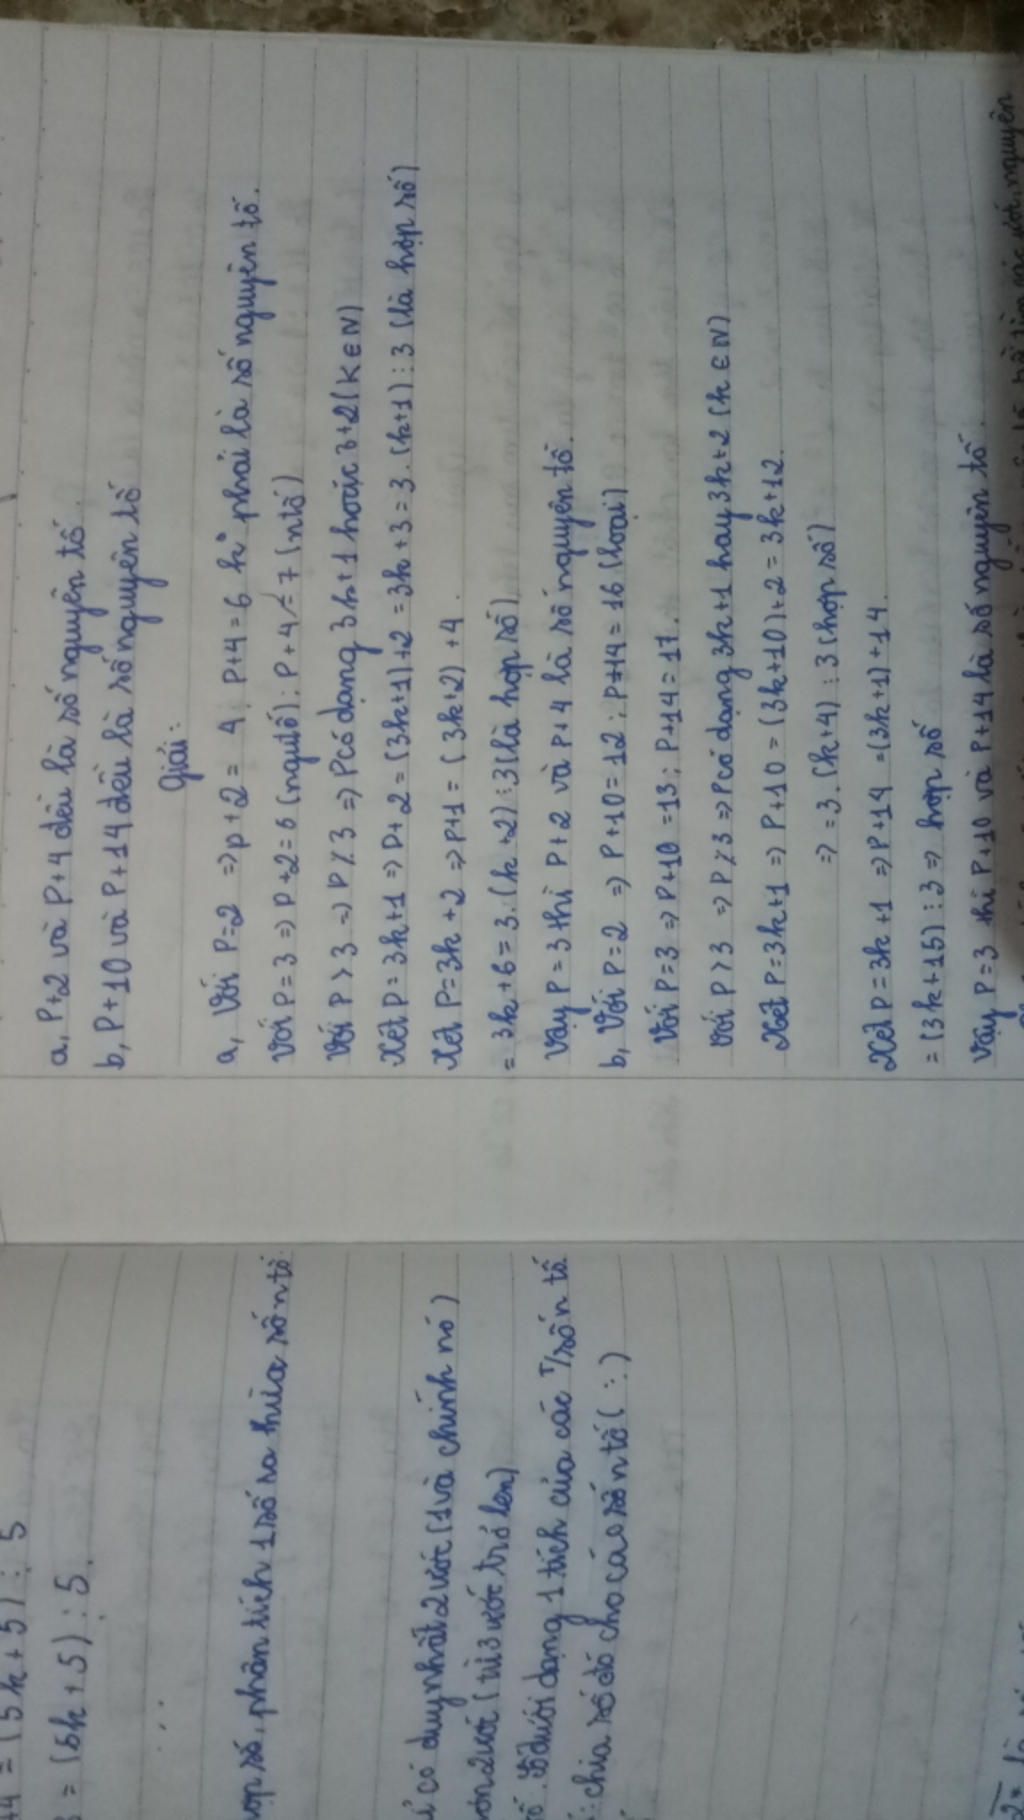 a, P+2 và P+4 đều là số nguyên tố.
b, P+10 và P+14 đều là số nguyên tố
Giải:
a, Với P=2 => P+2 = 4; P+4=6 k° phải là số nguyên tố.
Với P=3 => P+2=5 (nguyên tố); P+4=7 (ntố)
Với P>3 => P⋮̸3 => P có dạng 3k+1 hoặc 3+2(k∈N)
Xét P=3k+1 => P+2=(3k+1)+2=3k+3=3.(k+1)⋮3 (là hợp số)
Xét P=3k+2 => P+1=(3k+2)+4.
=3k+6=3.(k+2)⋮3(là hợp số)
Vậy P=3 thì P+2 và P+4 là số nguyên tố.
b, Với P=2 => P+10=12; P+14=16 (loại)
Với P=3 => P+10=13; P+14=17.
Với P>3 => P⋮̸3 => P có dạng 3k+1 hay 3k+2 (k∈N)
Xét P=3k+1 => P+10=(3k+10)+2=3k+12.
=> =3.(k+4)⋮3(hợp số)
Xét P=3k+1 => P+14=(3k+1)+14.
=(3k+15)⋮3 => hợp số
Vậy P=3 thì P+10 và P+14 là số nguyên tố.
= (5k+5)⋮5
= (5k+5)⋮5.
hợp số, phân tích 1 số ra thừa số ntố.
có duy nhất 2 ước (1 và chính nó)
2 ước (từ 3 ước trở lên)
dưới dạng 1 tích của các T/số ntố.
chia số đó cho các số ntố (:)